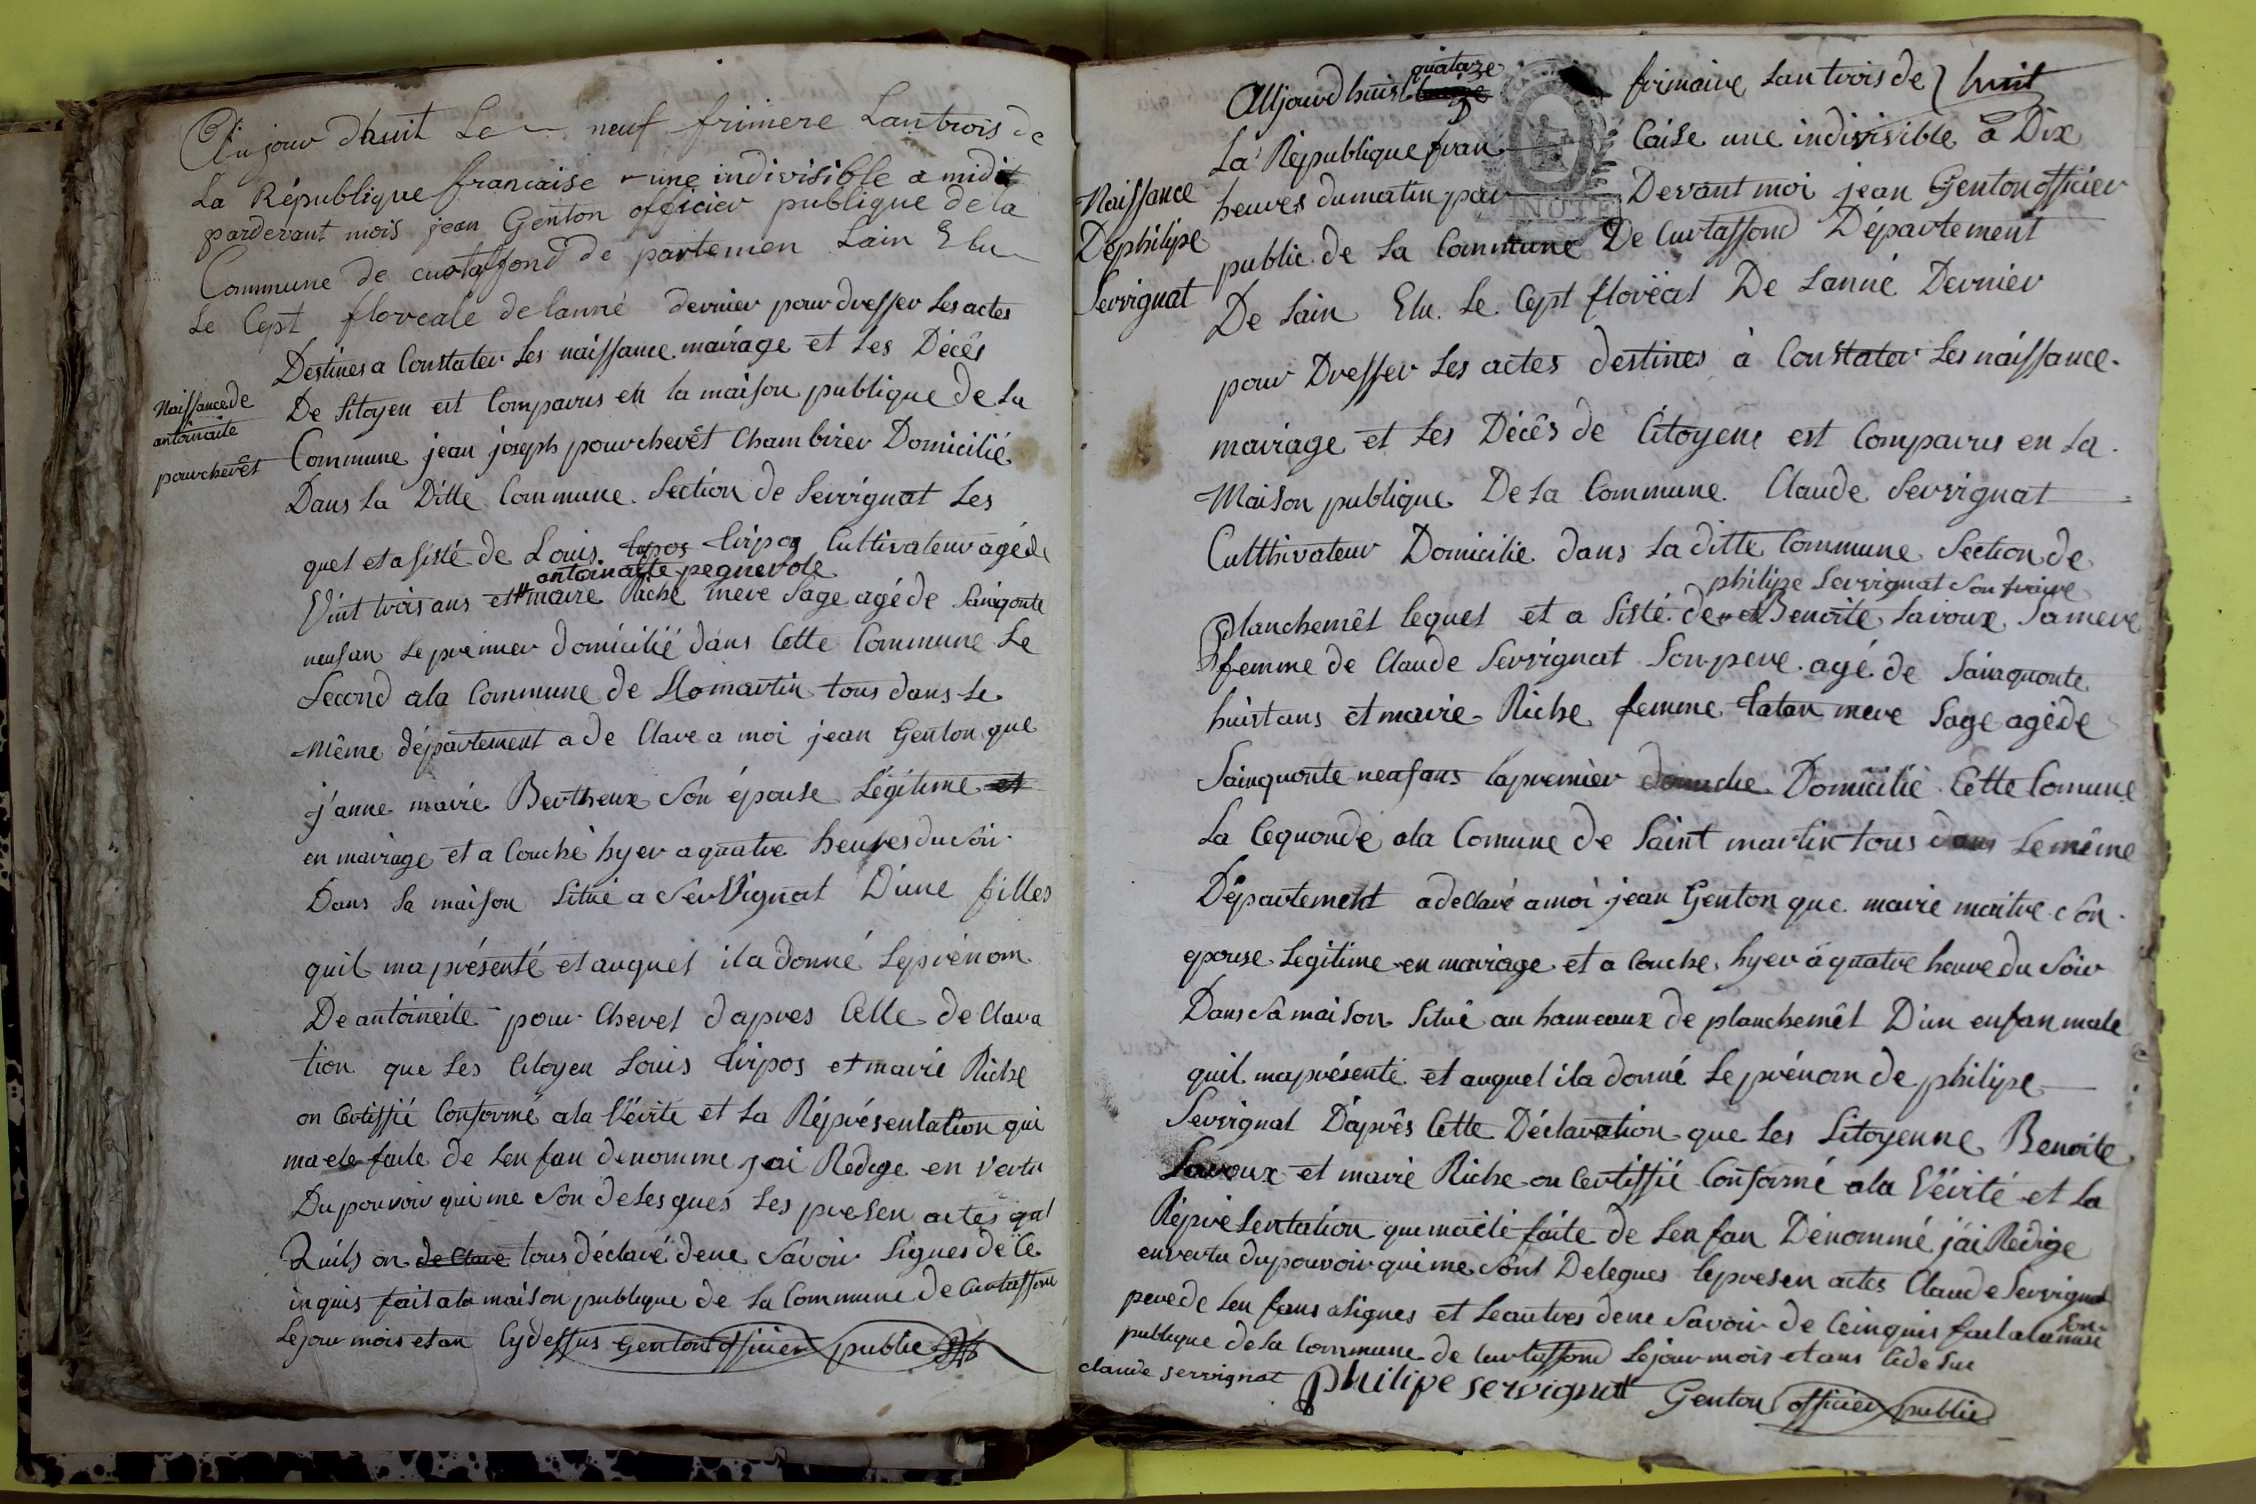 Aujour dhuit Le neuf frimere Lantrois de
La République francaise une indivisible a midit
pardevant mois jean Genton officier publique dela
Commune de curtaffond de partemen Lain Elu
Le Cept floreale de lanné dernier pour dresser Les actes
Destines a Constater Les naissance mairage et Les Décês
Naissance de
antoinaite
pourchevêt
De Sitoyen est Comparus en la maison publique de La
Commune jean joseph pourchevêt Chambirier Domicilié
Dans La Ditte Commune Section de Servignat Les
quel et a sisté de Louis Tirpos Cultivateur agéde
antoinatte pegnerole
Vint trois ans et maire Riche mere Sage agéde Sainqonte
neufan Le premier domicilié dans Cette Commune Le
Second ala Commune de St martin tous dans Le
même département a de Clare a moi jean Genton que
j'anne marie Bertheux Son épouse Légitime et
en mairage et a Couché hyer a quatre heures du Soir
Dans Sa maison Situé a Servignat D'une filles
quil ma présenté et auquel il a donné Le prénom
De antoineite pour Chevet dapres Cette de Clara
tion que Les Citoyen Louis Tirpos et marie Riche
on Certiffié Conformé ala Vérite et La Réprésentation qui
ma ete faite de Len fan denomme jai Redige en vertu
Du pouvoir qui me Son delesgues Les presen actes qal
Quils on de Clare tous déclaré dene Savoir Signes de Ce
inquis fait ala maison publique de La Commune de Curtaffon
Le jour mois et an Cydessus Genton officier public
quatorze
Aujourdhuis frimaire Lan trois de huit
La République fran caise une indivisible à Dix
heures dumatin par Devant moi jean Genton officier
Naissance
Dephilipe
Servignat
public de La Commune De Curtaffond Département
De Lain Elu Le Cept floréal De Lanné Dernier
pour Dresser Les actes destines à Constater Les naissance
mairage et Les Décês de Citoyens est Comparus en La
Maison publique De La Commune Claude Servignat
Cultthivateur Domicilie dans La ditte Commune Section de
philipe Servignat Son fraire
planchemêt lequel et a sisté de et Benoite Lavoux Samere
femme de Claude Servignat Son pere agé de Sainquonte
huistans et marie Riche femme Tatan mere Sage agéde
Sainquonte neufans Lapremier Domicilié Cette Comune
La Cequonde ala Comune de Saint martin tous dans Le même
Département adeClaré amoi jean Genton que marie maitre Son
epouse Legitime en mariage et a Couche hyer a quatre heure du Soir
Dans Sa maison Situé au hameaux de planchemêt D'un enfan male
quil ma présenté et auquel il a donné Le prénom de philipe
Servignat Dáprês Cette Déclaration que Les Sitoyenne Benoite
Lavoux et marie Riche on Certiffié Conformé ala Vérité et La
Réprésentation qui maété faite de Len fan Dénommé jái Rédige
en vertu du pouvoir qui me Sont Delegues Lepresen actes Claude Servignat
pere de Len fans a Signes et Leautres dene Savoir de Ceinquis fait ala maie
Son
publique de La Commune de Curtaffond Le jour mois et ans Cidesu
claude servignat philipe servignat Genton officier public